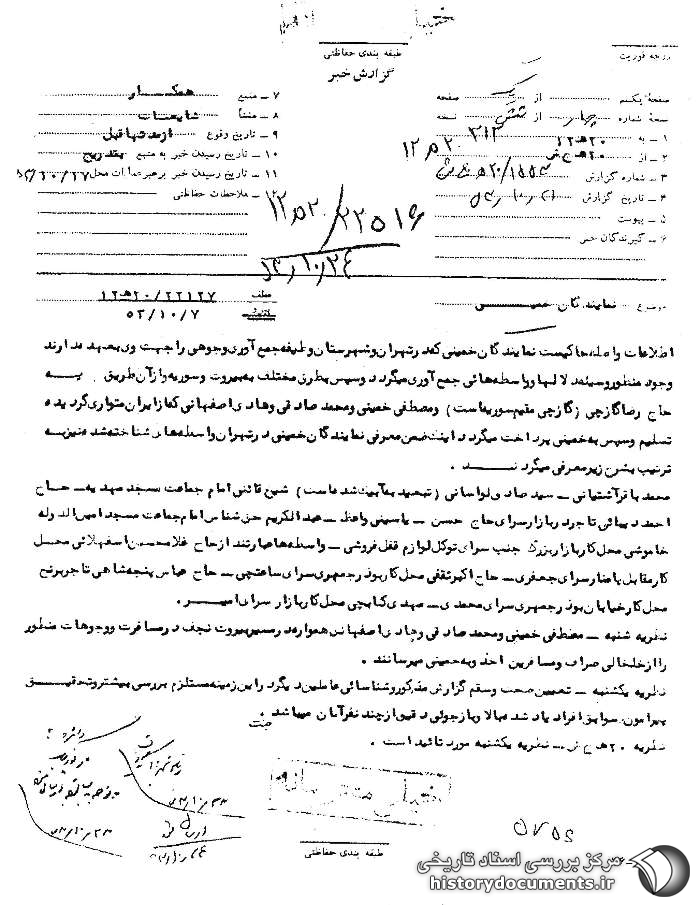 خیلی محرمانه
طبقه بندی حفاظتی
گزارش خبر
درجه فوریت
صفحهٔ یکم از یک صفحه
نسخهٔ شماره چهار از شش نسخه
۱ـ به ۳۱۲
۲ـ از ۲۰ هـ ۱۲
۳ـ شماره گزارش
۴ـ تاریخ گزارش
۵ـ پیوست
۶ـ گیرندگان خبر
۷ـ منبع همکار
۸ـ منشأ شایعات
۹ـ تاریخ وقوع ازمدتها قبل
۱۰ـ تاریخ رسیدن خبر به منبع بتدریج
۱۱ـ تاریخ رسیدن خبر برهبرعملیات محل
۱۲ـ ملاحظات حفاظتی
۲۲۵۱۶
۵۳/۱۰/۲۴
موضوع نمایندگان خمینی
عطف ۲۲۱۲۷/۲۰هـ۱۲
۵۳/۱۰/۷
اطلاعات واصله حاکیست نمایندگان خمینی که در تهران و شهرستان وظیفه جمع آوری وجوهی را جهت وی بعهده دارند
وجوه منظور وسیله دلالها و واسطه هائی جمع آوری میگردد و سپس بطرق مختلف به بیروت و سوریه و از آن طریق به
حاج رضا گازچی (گازچی مقیم سوریه است) و مصطفی خمینی و محمد صادقی و هادی اصفهانی که از ایران متواری گردیده
تسلیم و سپس به خمینی پرداخت میگردد اینک ضمن معرفی نمایندگان خمینی در تهران واسطه های شناخته شده نیز به
ترتیب بشرح زیر معرفی میگردند .
محمد باقر آشتیانی ـ سید صادق لواسانی (تبعید به آبیک شده است) شیخ قائنی امام جماعت مسجد مهدیه ـ حاج
احمد دیبائی تاجر در بازار سرای حاج حسن ـ یاسینی واعظ ـ عبدالکریم حق شناس امام جماعت مسجد امین الدوله
خاموشی محل کار بازار بزرگ جنب سرای توکل لوازم قفل فروشی ـ واسطه ها عبارتند از حاج غلامحسین اسفهلائی محل
کار مقابل پاساژ سرای جعفری ـ حاج اکبر ثقفی محل کار بوذرجمهری سرای ساعتچی ـ حاج عباس پنجه شاهی تاجر برنج
محل کار خیابان بوذرجمهری سرای محمدی ـ مهدی کبابچی محل کار بازار سرای امیر .
نظریه شنبه ـ مصطفی خمینی و محمد صادقی و هادی اصفهانی همواره در مسیر بیروت نجف در مسافرت و وجوهات منظور
را از خلخالی صراف و مسافرین اخذ و به خمینی میرسانند .
نظریه یکشنبه ـ تعیین صحت و سقم گزارش مذکور و شناسائی عاملین دیگر در این زمینه مستلزم بررسی بیشتر و تحقیق
پیرامون سوابق افراد یاد شده بالا و بازجوئی دقیق از چند نفر آنان میباشد .
نظریه ۲۰ هـ ج ش ـ نظریه یکشنبه مورد تائید است .
خیلی محرمانه
طبقه بندی حفاظتی
مرکز بررسی اسناد تاریخی
historydocuments.ir